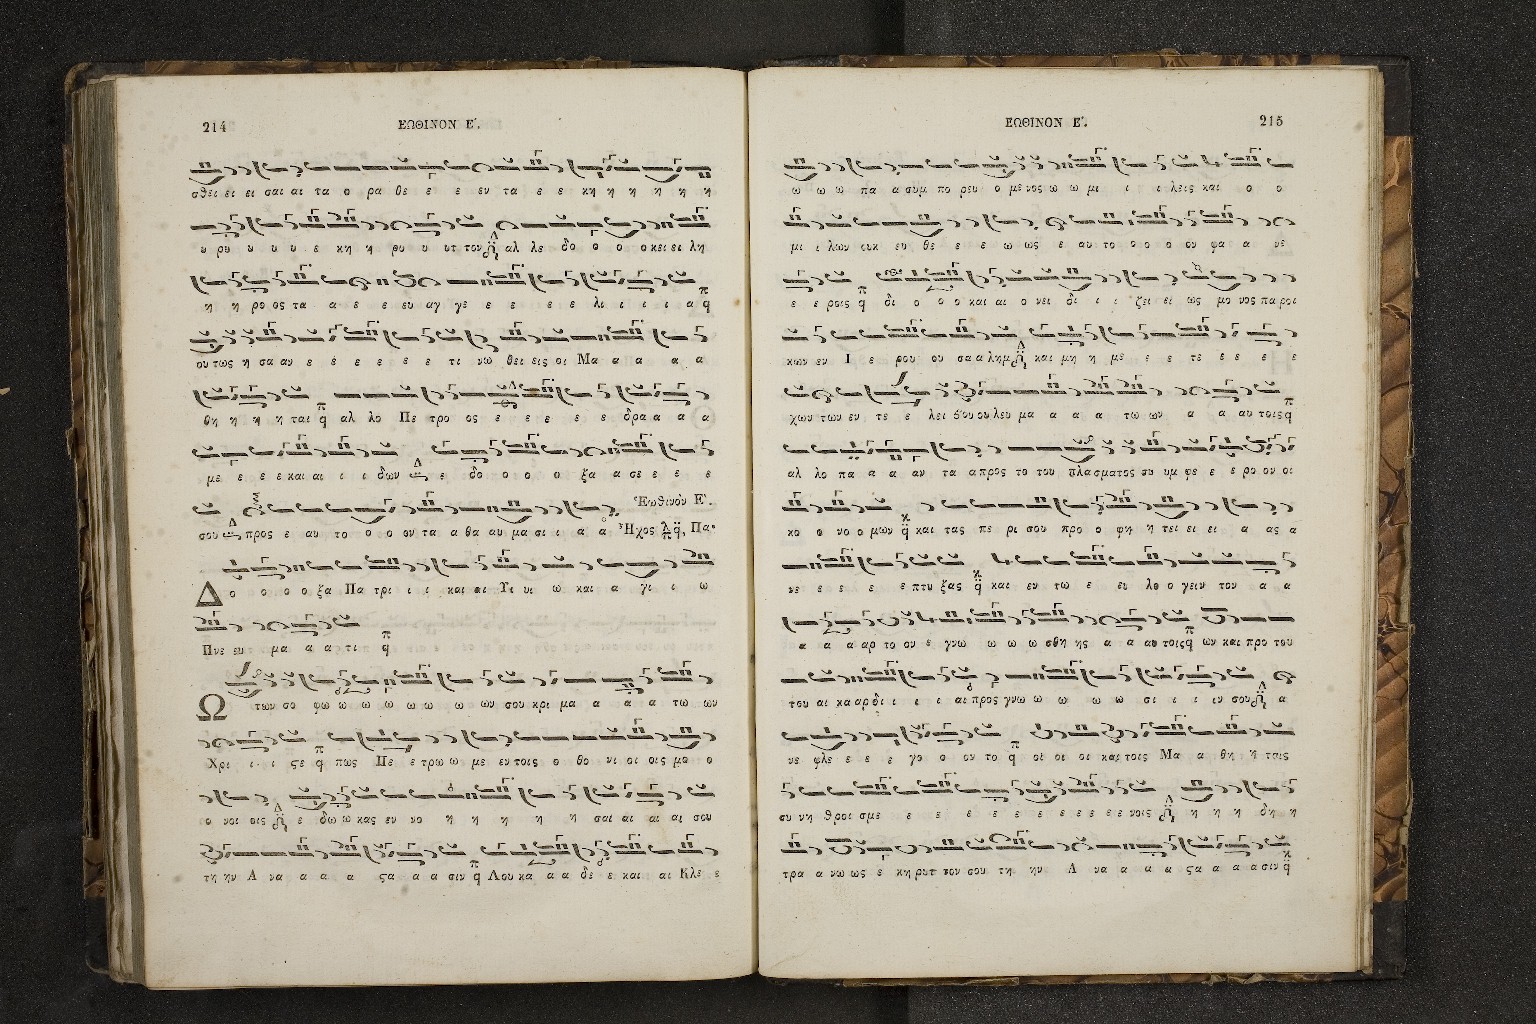 214
ΕΩΘΙΝΟΝ Ε΄.
σθει ει ει σαι αι τα ο ρα θε ε ε ευ τα ε ε κη η η η η η
υ ρυ υ υ υ ε κη η ρυ υ υτ τον αλ λε δο ο ο ο κει ει λη
η η ρο ος τα α ε ε ευ αγ γε ε ε ε ε λι ι ι ι α
ου τως η σα αν ε ε ε ε ε ε τι νω θει εις οι Μα α α α α
θη η η η ται αλ λο Πε τρο ος ε ε ε ε ε δρα α α α
με ε ε ε και αι ι ι δων ε δο ο ο ο ξα α σε ε ε ε
σου προς ε αυ το ο ο ον τα α θα αυ μα σι ι α α
Ἑωθινὸν Ε΄.
Ἦχος λ π q, Πα.
Δο ο ο ο ξα Πα τρι ι ι και αι Υι υι ω και α γι ι ω
Πνε ευ μα α α τι
Ω των σο φω ω ω ω ω ω ω ων σου κρι μα α α α τω ων
Χρι ι ι ι ςε πως Πε ε τρω ω με εν τοις ο θο νι οι οις μο ο
ο νοι οις ε δω ω κας εν νο η η η η η σαι αι αι αι σου
τη ην Α να α α α ςα α α σιν Λου κα α α δε ε και αι Κλε ε
ΕΩΘΙΝΟΝ Ε΄.
215
ω ω ω πα α συμ πο ρευ ο με νος ω ω μι ι ι λεις και ο ο
μι ι λων ουκ ευ θε ε ε ω ως ε αυ το ο ο ο ον φα α νε
ε ε ροις δι ο ο ο και αι ο νει δι ι ι ζει ει ως μο νος πα ροι
κων εν Ι ε ρου ου σα α λημ και μη η με ε ε τε ε ε ε ε
χων των εν τε ε λει βου ου λευ μα α α α τω ων α α αυ τοις
αλ λο πα α α αν τα α προς το του πλα σμα τος συ υμ φε ε ε ρο ον οι
κο ο νο ο μων και τας πε ρι σου προ ο φη η τει ει ει α ας α
νε ε ε ε ε πτυ ξας και εν τω ε ευ λο ο γειν τον α α
α α α αρ το ον ε γνω ω ω ω σθη ης α α αυ τοις ων και προ του
του αι κα αρ δι ι ι ι αι προς γνω ω ω ω ω σι ι ι ιν σου α
νε φλε ε ε ε γο ο ον το οι οι οι και τοις Μα α θη η ταις
συ νη θροι σμε ε ε ε ε ε ε ε ε ε νοις η η η δη η
τρα α νω ως ε κη ρυτ τον σου τη ην Α να α α α ςα α α α σιν